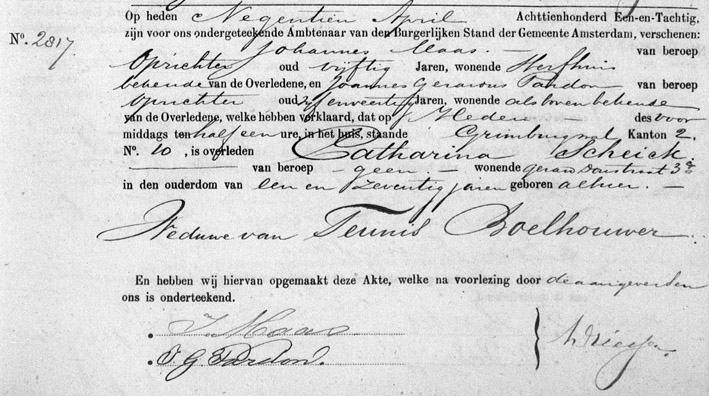 Nº. 2817
Op heden Negentien April Achttienhonderd Een-en-Tachtig,
zijn voor ons ondergeteekende Ambtenaar van den Burgerlijken Stand der Gemeente Amsterdam, verschenen:
Johannes Maas. — van beroep
Oprichter oud vijftig Jaren, wonende
bekende van de Overledene, en Joannes Gerardus Tardon van beroep
oprichter oud Jaren, wonende als boven bekende
van de Overledene, welke hebben verklaard, dat op Heden — des voor
middags ten half een ure, in het huis, staande Grimburgwal Kanton 2.
Nº. 10, is overleden Catharina Scheick.
van beroep — geen — wonende gerard doustraat
in den ouderdom van een en zeventig jaren geboren alhier. —
Weduwe van Teunis Boelhouwer
En hebben wij hiervan opgemaakt deze Akte, welke na voorlezing door de aangevers
ons is onderteekend.
J. Maas
J. G. Tardon.